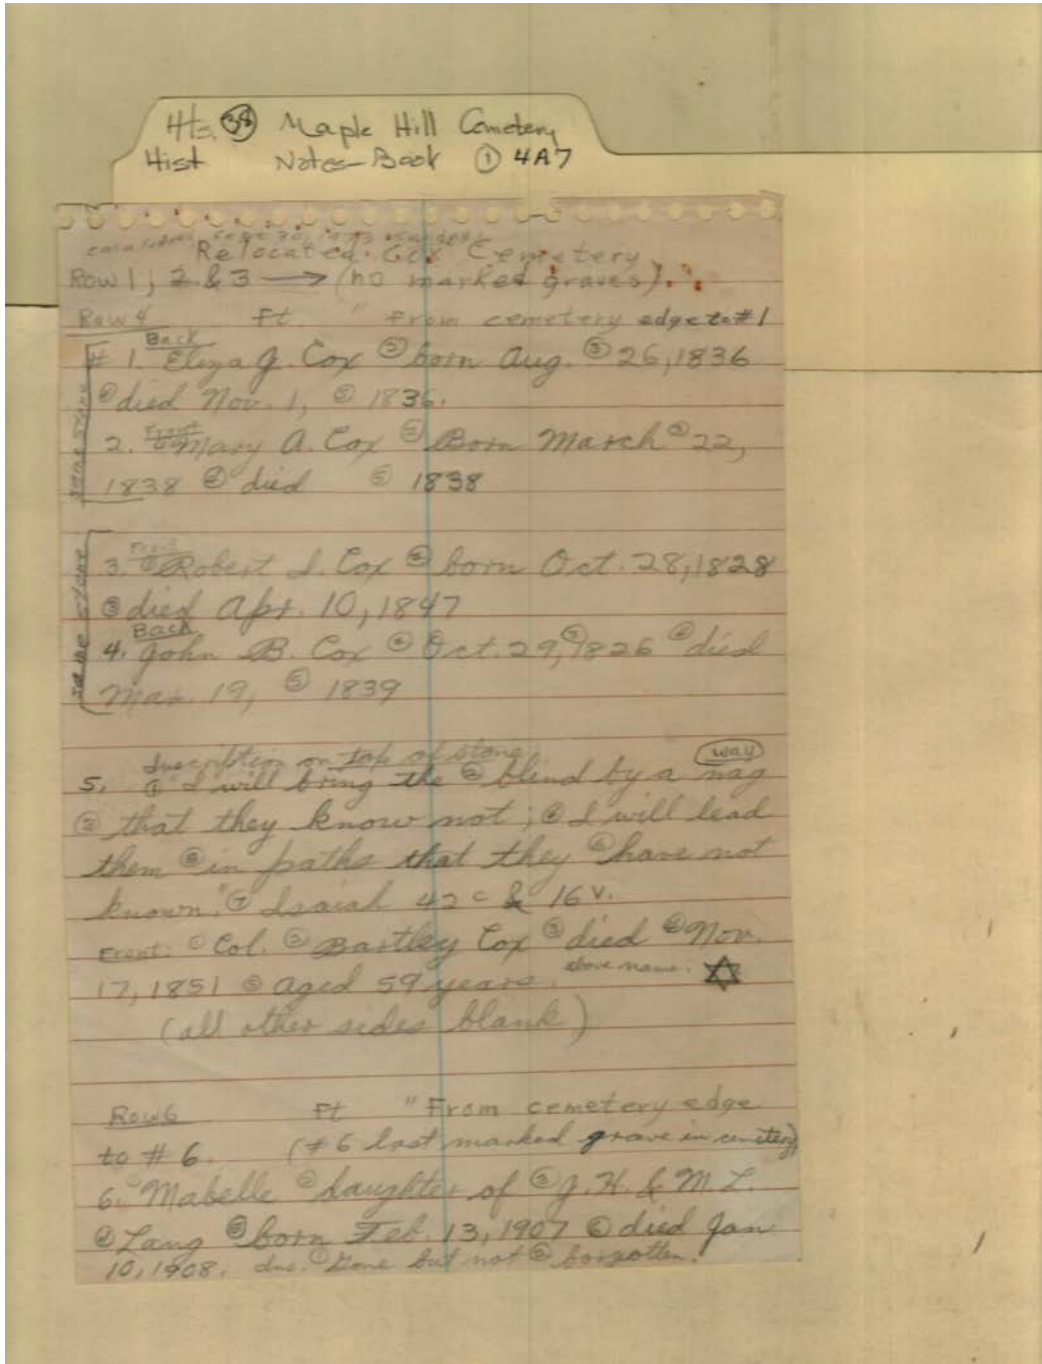 Hts. 38 Maple Hill Cemetery
Hist Notes-Book ① 4A7
Sept 30, 1973
Relocated Cox Cemetery
Row 1, 2 & 3 → (no marked graves).
Row 4 Ft " From cemetery edge to #1
Back
# 1. Eliza J. Cox ② born Aug. ③ 26, 1836
④ died Nov. 1, ⑤ 1836.
same stone
Front
2. ① Mary A. Cox ② Born March ③ 22,
1838 ④ died ⑤ 1838
same stone
Front
3. ① Robert L. Cox ② born Oct. 28, 1828
③ died Apr. 10, 1847
Back
4. John B. Cox ② Oct. 29, ③ 1826 ④ died
Mar. 19, ⑤ 1839
Inscription on top of stone
(way)
5. ① "I will bring the ② blind by a nag
③ that they know not; ④ I will lead
them ⑤ in paths that they ⑥ have not
known." ⑦ Isaiah 42 c & 16 v.
Front: ① Col. ② Bartley Cox ③ died ④ Nov.
17, 1851 ⑤ aged 59 years. above name. ✡
(all other sides blank)
Row 6 Ft " From cemetery edge
to # 6. (# 6 last marked grave in cemetery)
6. ① Mabelle ② daughter of ③ J. H. & M. L.
④ Lang ⑤ born Feb. 13, 1907 ⑥ died Jan
10, 1908. ins. ① Gone but not ② forgotten.